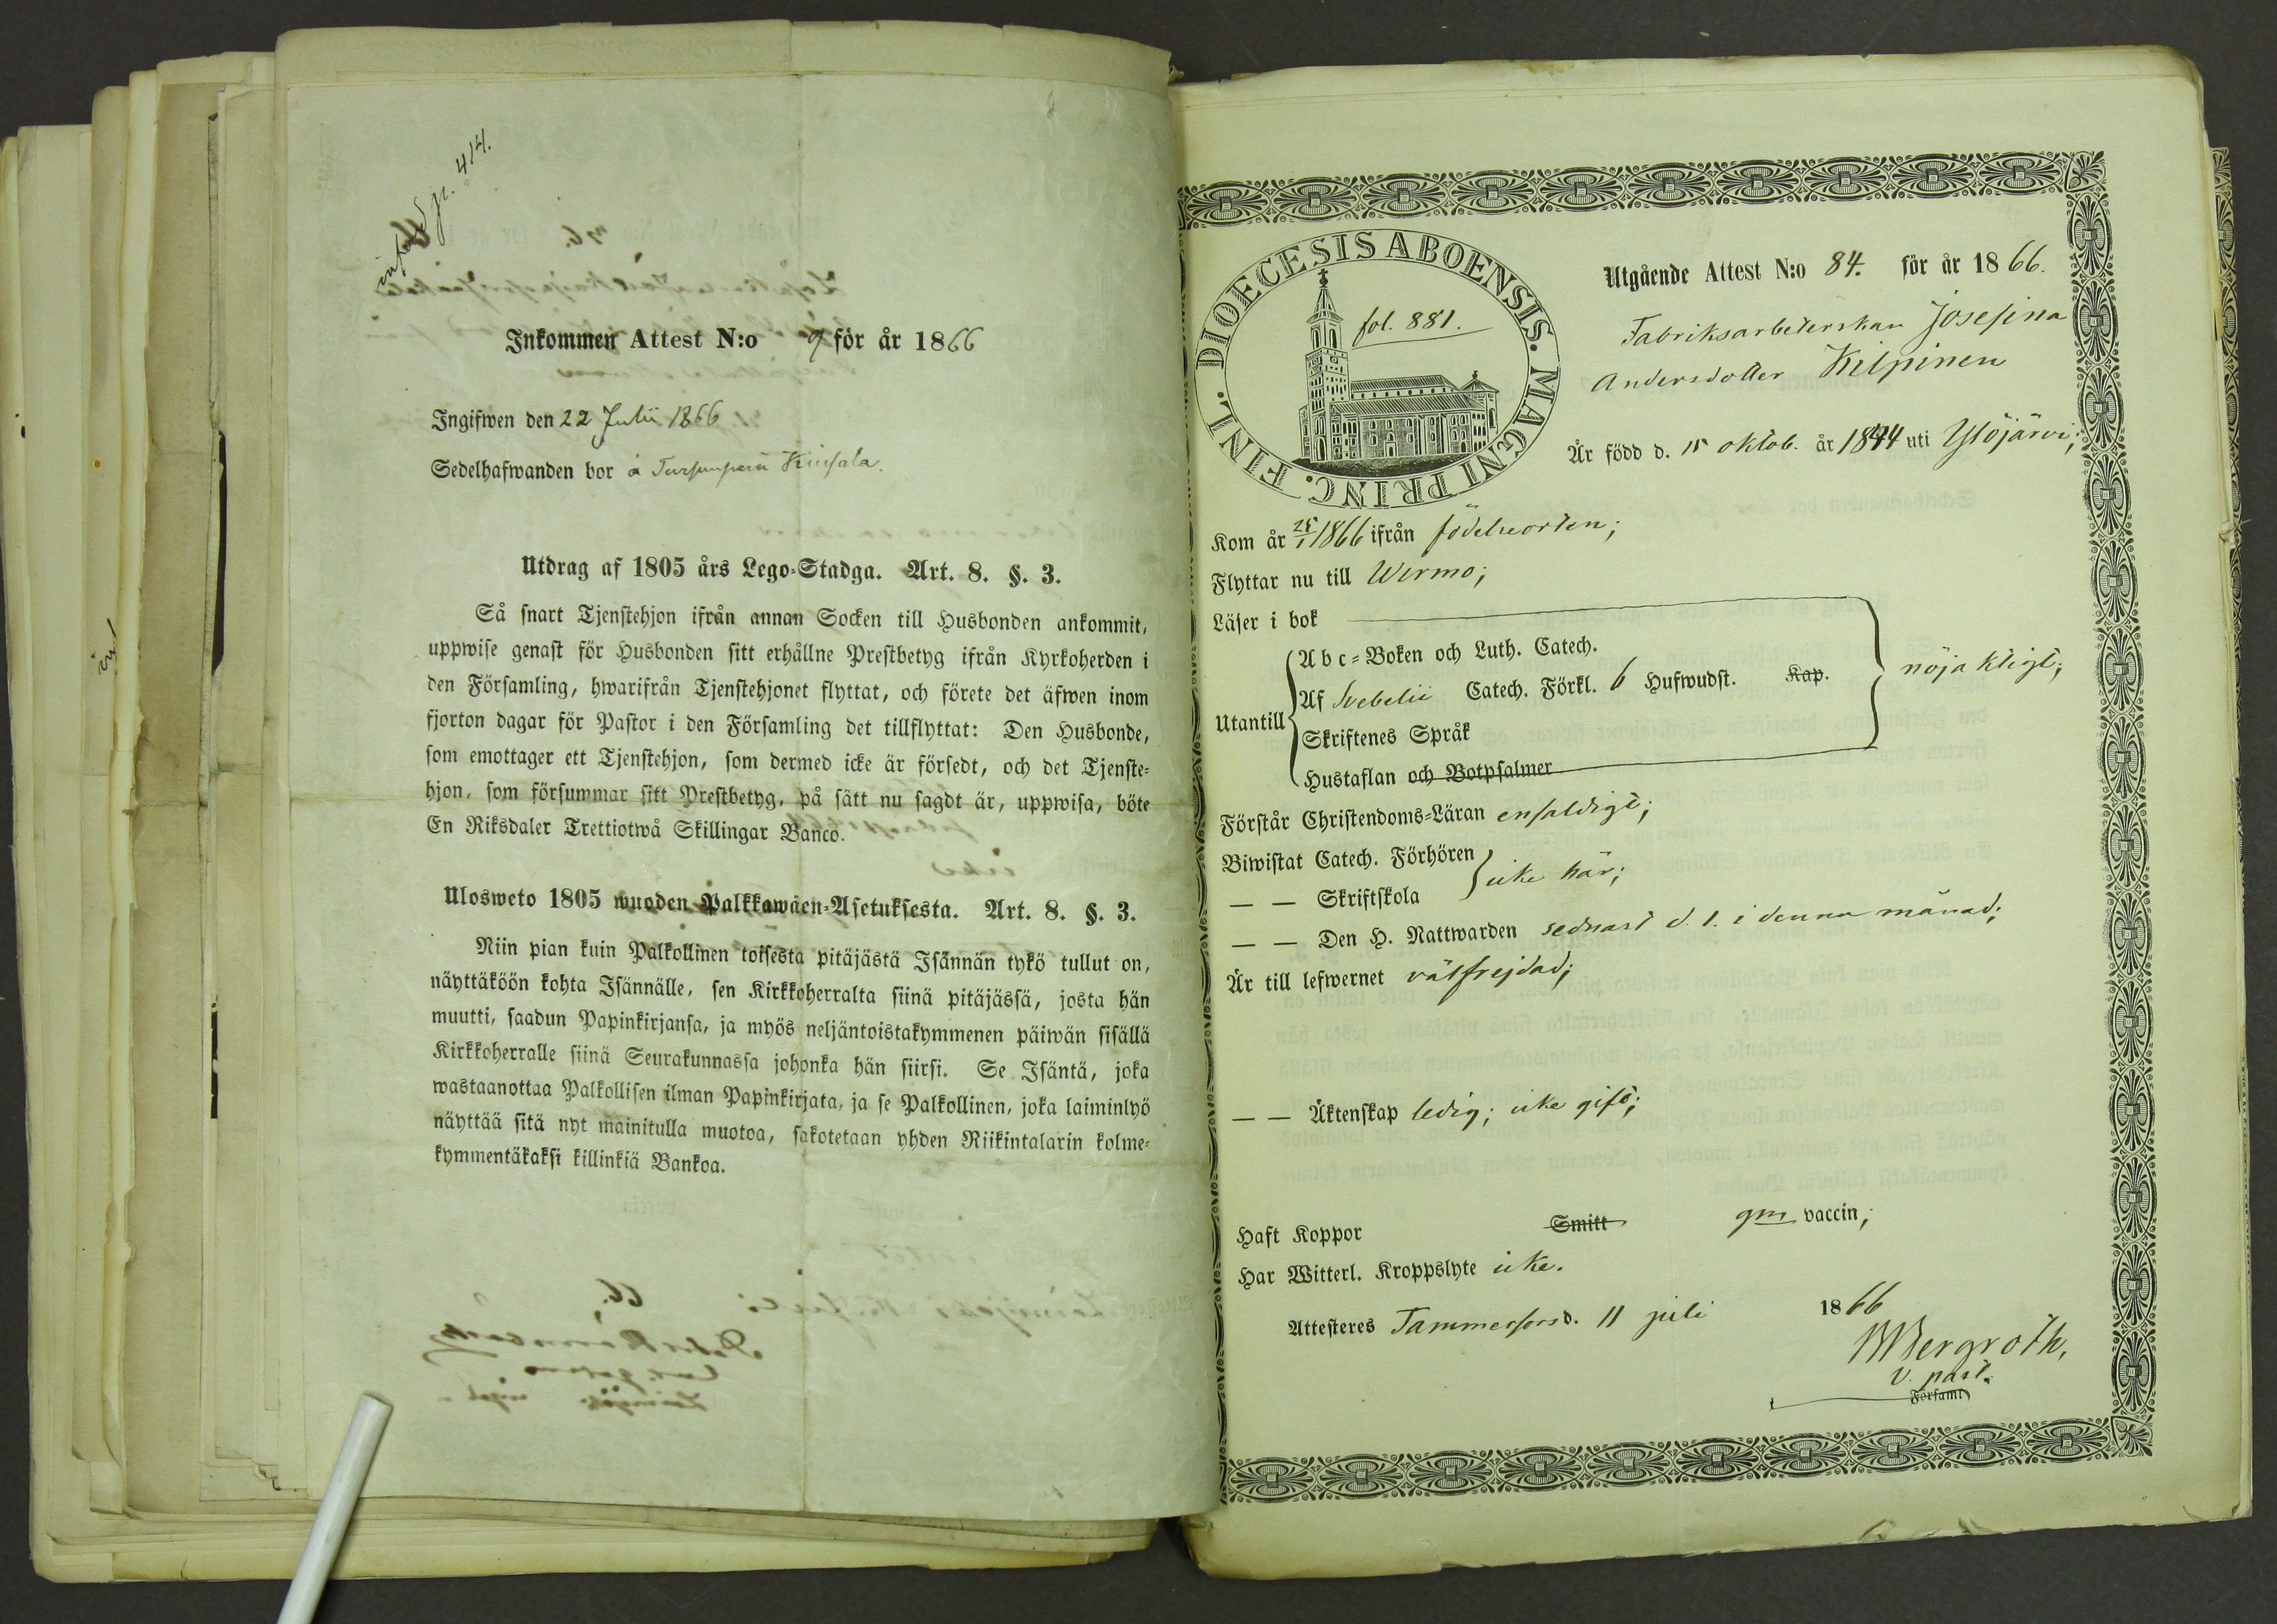 införd p. 414.
Inkommen Attest N:o 9 för år 1866
Ingifwen den 22 Julii 1866
Sedelhafwanden bor å
Utdrag af 1805 års Lego-Stadga. Art. 8. §. 3.
Så snart Tjenstehjon ifrån annan Socken till Husbonden ankommit,
uppwise genast för Husbonden sitt erhållne Prestbetyg ifrån Kyrkoherden i
den Församling, hwarifrån Tjenstehjonet flyttat, och förete det äfwen inom
fjorton dagar för Pastor i den Församling det tillflyttat: Den Husbonde,
som emottager ett Tjenstehjon, som dermed icke är försedt, och det Tjenste-
hjon, som försummar sitt Prestbetyg, på sätt nu sagdt är, uppwisa, böte
En Riksdaler Trettiotwå Skillingar Banco.
Ulosweto 1805 wuoden Palkkawäen-Asetuksesta. Art. 8. §. 3.
Niin pian kuin Palkollinen toisesta pitäjästä Isännän tykö tullut on,
näyttäköön kohta Isännälle, sen Kirkkoherralta siinä pitäjässä, josta hän
muutti, saadun Papinkirjansa, ja myös neljäntoistakymmenen päiwän sisällä
Kirkkoherralle siinä Seurakunnassa johonka hän siirsi. Se Isäntä, joka
wastaanottaa Palkollisen ilman Papinkirjata, ja se Palkollinen, joka laiminlyö
näyttää sitä nyt mainitulla muotoa, sakotetaan yhden Riikintalarin kolme-
kymmentäkaksi killinkiä Bankoa.
DIOECESIS ABOENSIS. MAGNI PRINC. FINL.
fol. 881.
Utgående Attest N:o 84. för år 1866.
Fabriksarbeterskan Josefina
Andersdotter Kilpinen
Är född d. 15 oktob. år 1844 uti Ylöjärvi;
Kom år 25/1 1866 ifrån födelseorten;
Flyttar nu till Wirmo;
Läser i bok
Utantill
Abc-Boken och Luth. Catech.
Af Svebelii Catech. Förkl. 6 Hufwudst. Kap.
nöjaktigt;
Skriftenes Språk
Hustaflan och Botpsalmer
Förstår Christendoms-Läran enfaldigt;
Biwistat Catech. Förhören
— — Skriftskola
icke här;
— — Den H. Nattwarden sednast d. 1. i denna månad;
Är till lefwernet välfrejdad;
— — Äktenskap ledig; icke gift;
Haft Koppor Smitt gm vaccin;
Har Witterl. Kroppslyte icke.
Attesteres Tammerfors d. 11 juli 1866
Bergroth,
v. past.
Församl